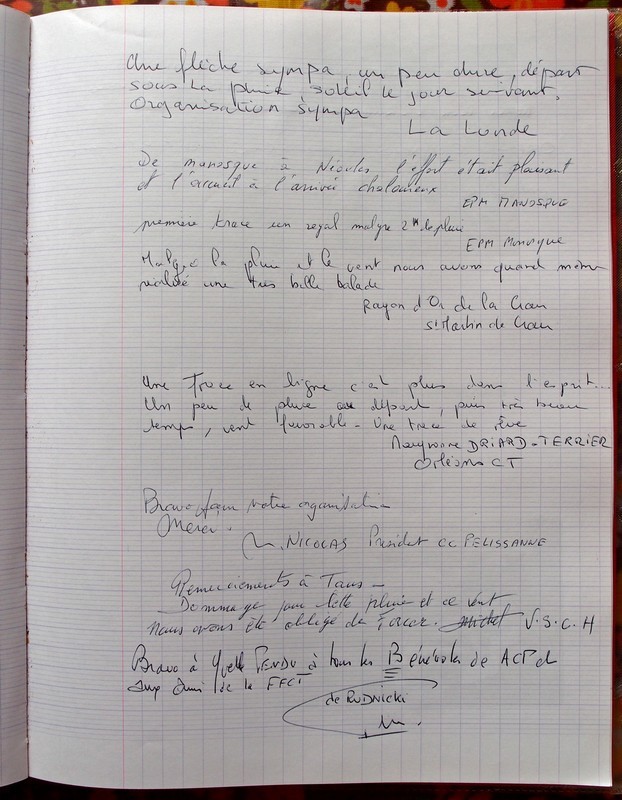 Une flèche sympa, un peu dure, départ
sous la pluie, soleil le jour suivant,
organisation sympa
La Londe
De manosque à Néoules l'effort était plaisant
et l'accueil à l'arrivée chaleureux
EPM MANOSQUE
première trace un regal malgre 2H de pluie
EPM Manosque
Malgré la pluie et le vent nous avons quand même
réalisé une très belle balade
Rayon d'Or de la Crau
St Martin de Crau
Une Trace en ligne c'est plus dans l'esprit...
Un peu de pluie au départ, puis très beau
temps, vent favorable - Une trace de rêve
DRIARD-TERRIER
Orléans CT
Bravo pour votre organisation
Merci.
M. NICOLAS Président CC PELISSANNE
Remerciements à Tous -
Dommage pour cette pluie et ce vent
Nous avons été obligé de forcer. V.S.C.H
Bravo à à tous les Bénévoles de ACP et
aux Amis de la FFCT
de RUDNICKI